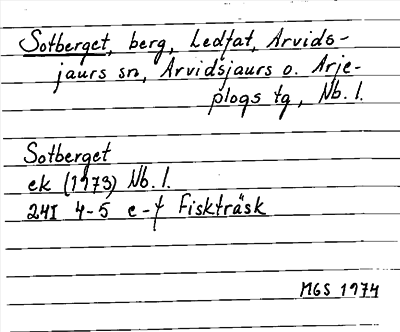 Sotberget, berg, Ledfat, Arvids-
jaurs sn, Arvidsjaurs o. Arje-
plogs tg, Nb. l.
Sotberget
ek (1973) Nb. l.
24I 4-5 e-f Fiskträsk
MGS 1974